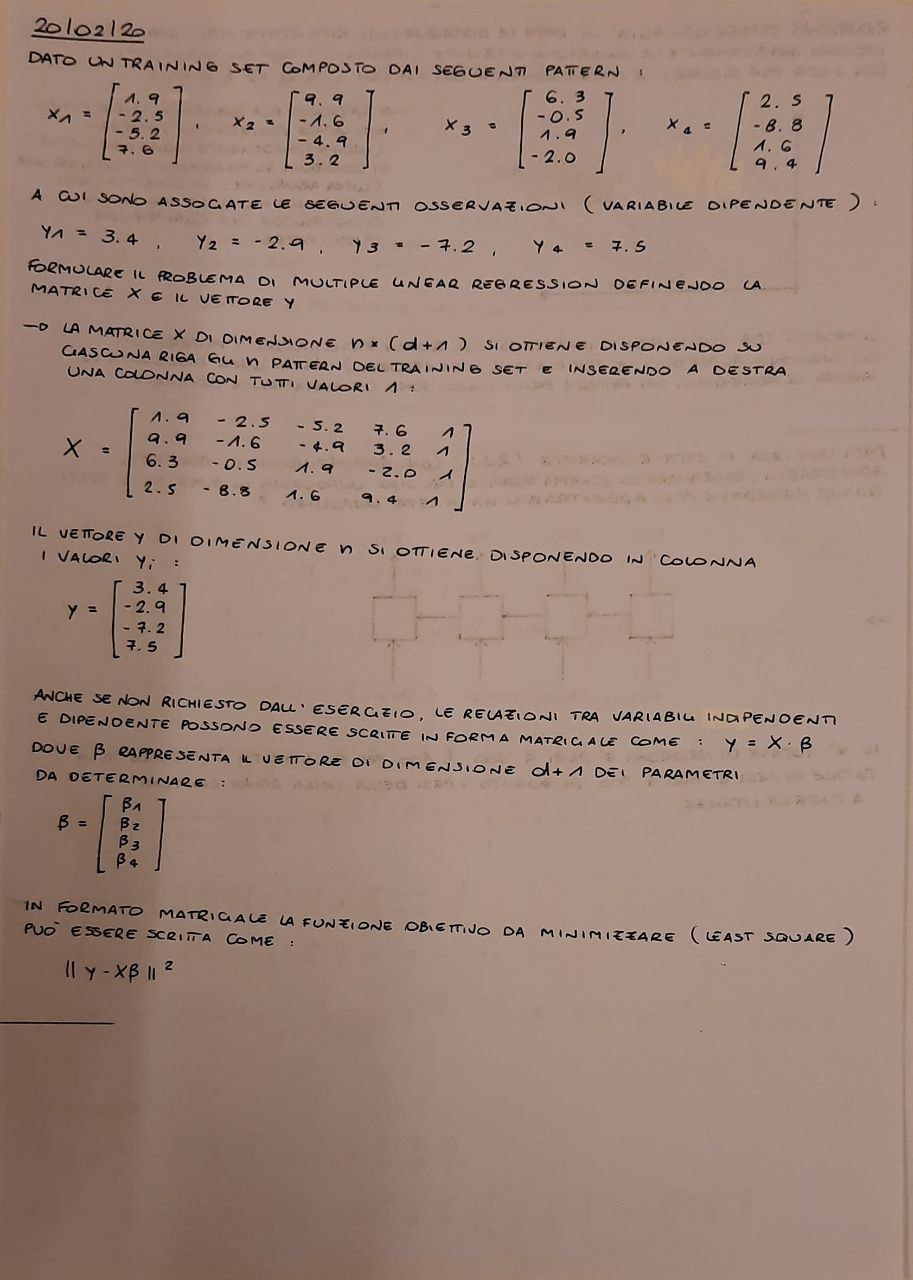 20/02/20
DATO UN TRAINING SET COMPOSTO DAI SEGUENTI PATTERN :
X1 = [ 1.9 -2.5 -5.2 7.6 ] , X2 = [ 9.9 -1.6 -4.9 3.2 ] , X3 = [ 6.3 -0.5 1.9 -2.0 ] , X4 = [ 2.5 -8.8 1.6 9.4 ]
A CUI SONO ASSOCIATE LE SEGUENTI OSSERVAZIONI ( VARIABILE DIPENDENTE ) :
Y1 = 3.4 , Y2 = -2.9 , Y3 = -7.2 , Y4 = 7.5
FORMULARE IL PROBLEMA DI MULTIPLE LINEAR REGRESSION DEFINENDO LA
MATRICE X E IL VETTORE Y
→ LA MATRICE X DI DIMENSIONE n × (d+1) SI OTTIENE DISPONENDO SU
CIASCUNA RIGA GLI n PATTERN DEL TRAINING SET E INSERENDO A DESTRA
UNA COLONNA CON TUTTI VALORI 1 :
X = [ 1.9 -2.5 -5.2 7.6 1
9.9 -1.6 -4.9 3.2 1
6.3 -0.5 1.9 -2.0 1
2.5 -8.8 1.6 9.4 1 ]
IL VETTORE Y DI DIMENSIONE n SI OTTIENE DISPONENDO IN COLONNA
I VALORI Yi :
Y = [ 3.4
-2.9
-7.2
7.5 ]
ANCHE SE NON RICHIESTO DALL' ESERCIZIO, LE RELAZIONI TRA VARIABILI INDIPENDENTI
E DIPENDENTE POSSONO ESSERE SCRITTE IN FORMA MATRICIALE COME : Y = X · β
DOVE β RAPPRESENTA IL VETTORE DI DIMENSIONE d+1 DEI PARAMETRI
DA DETERMINARE :
β = [ β1
β2
β3
β4 ]
IN FORMATO MATRICIALE LA FUNZIONE OBIETTIVO DA MINIMIZZARE ( LEAST SQUARE )
PUÒ ESSERE SCRITTA COME :
|| Y - Xβ || ²